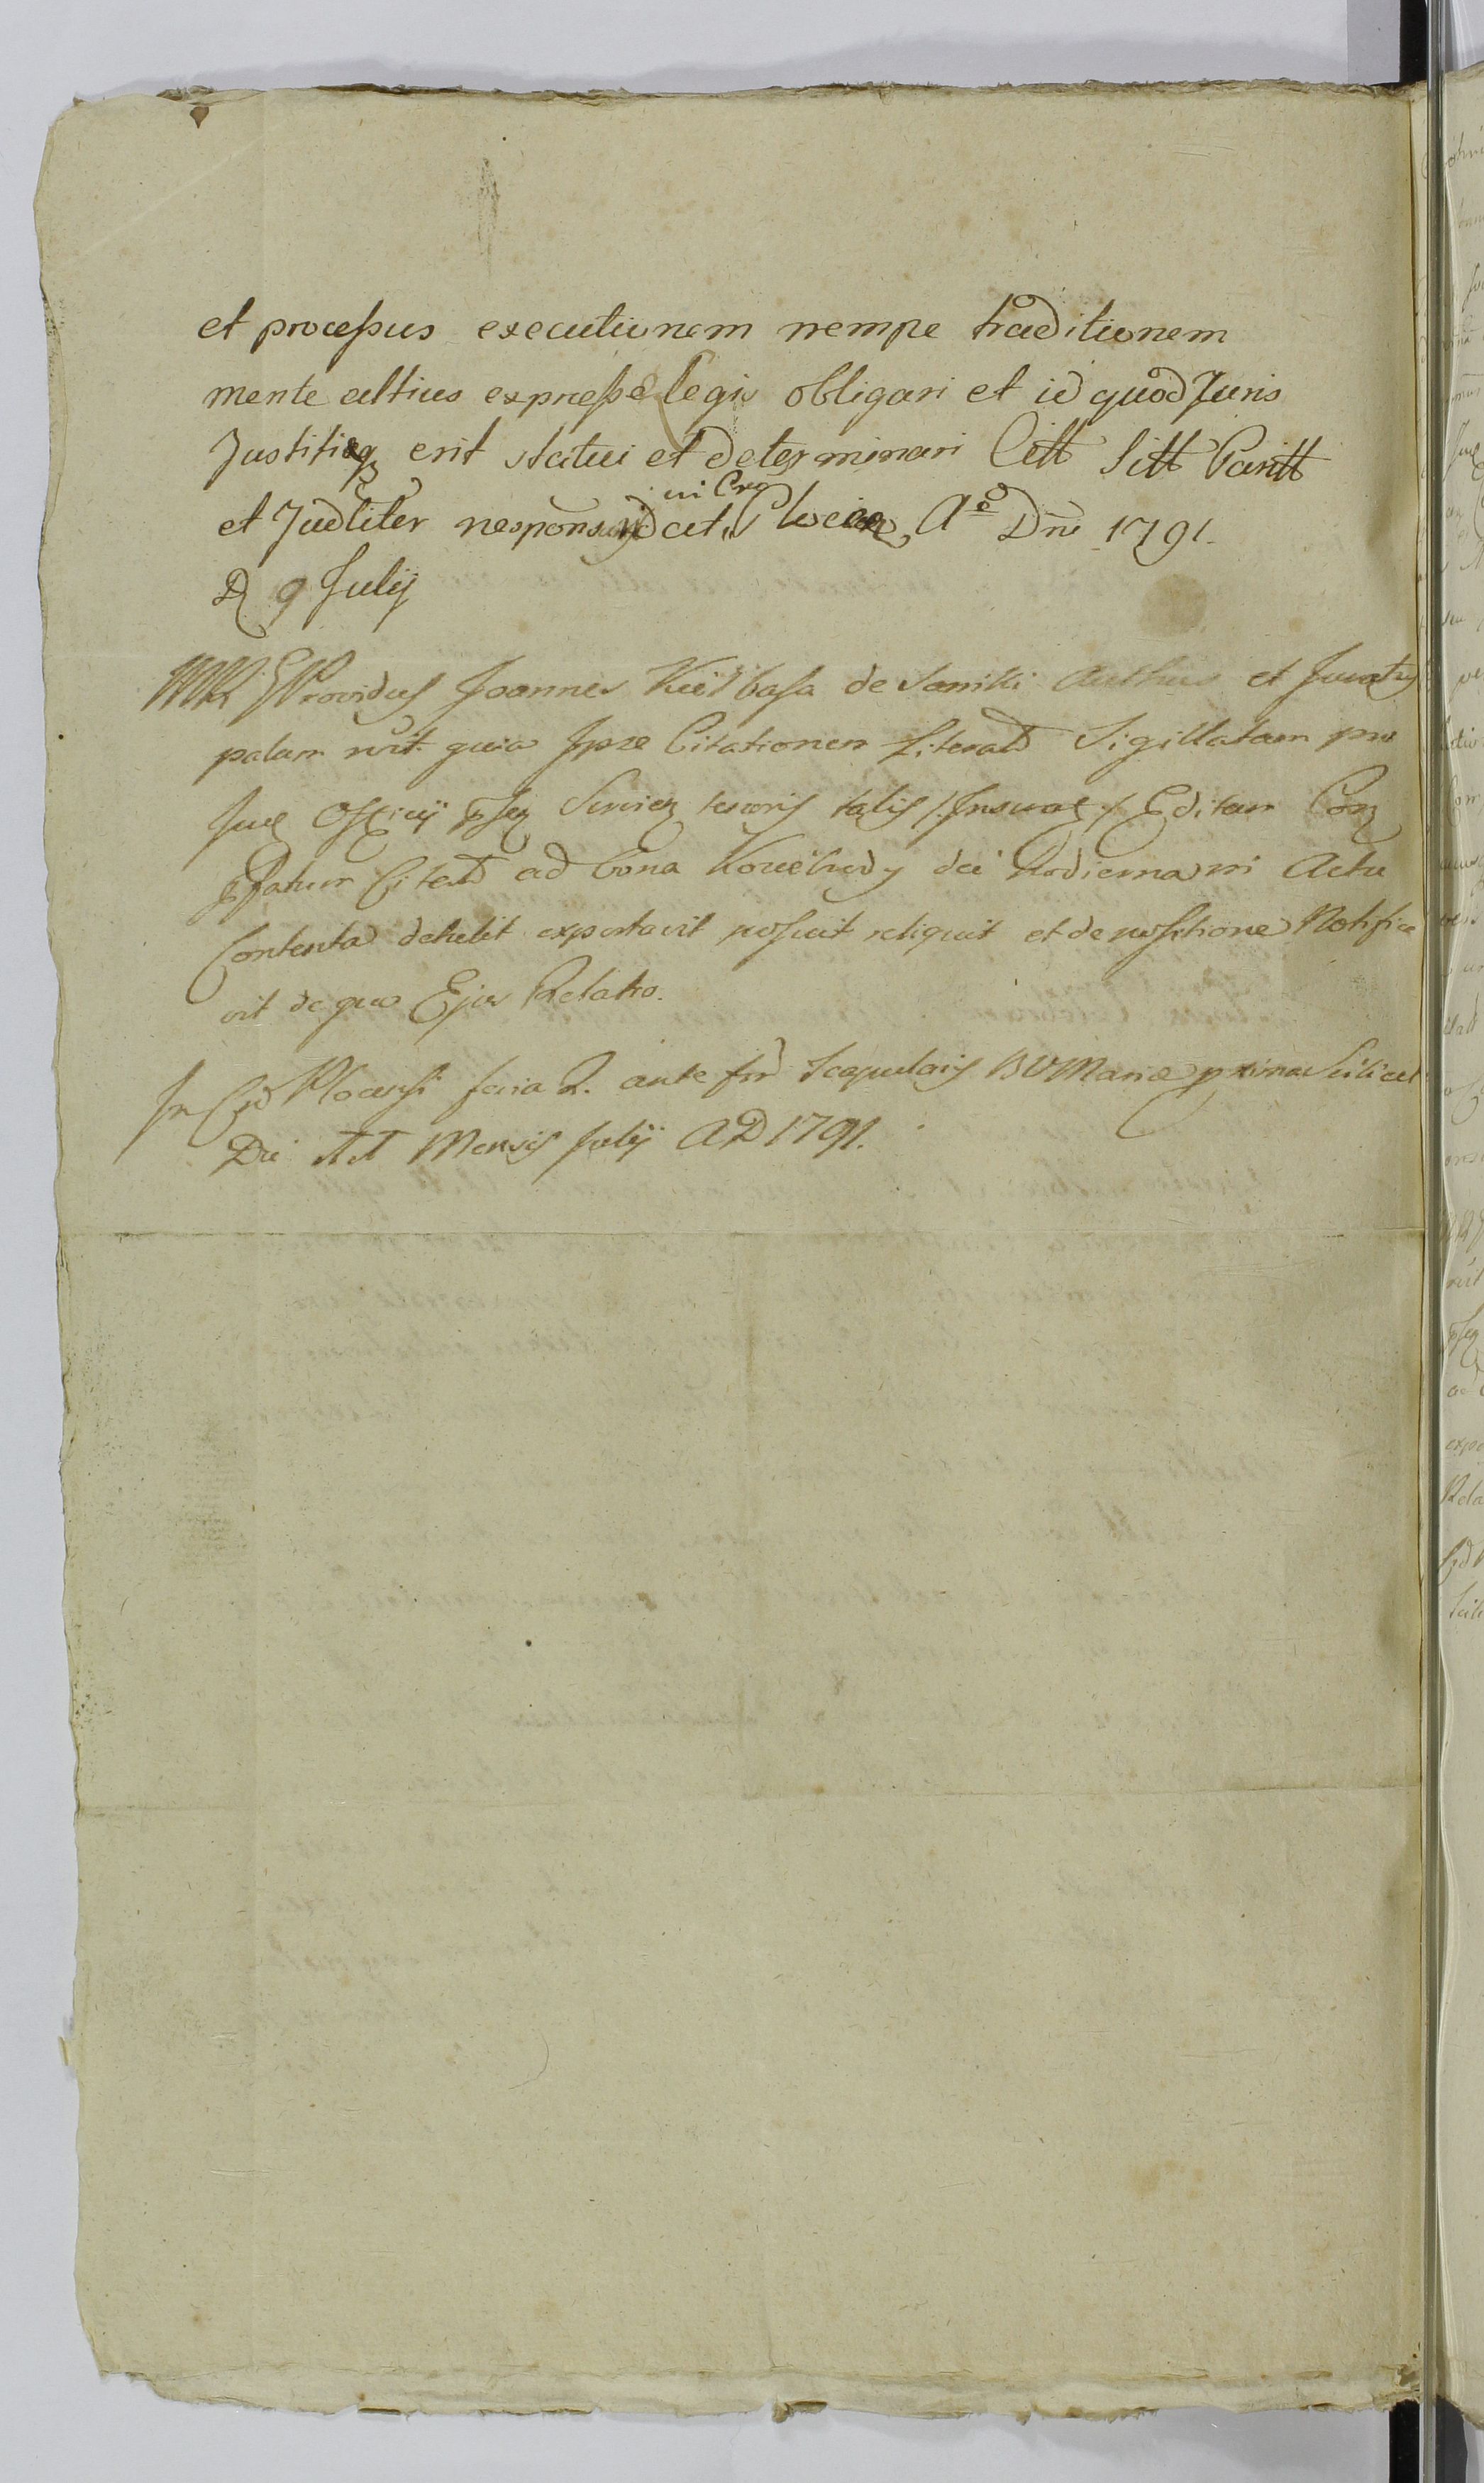 et processus executionem nempe traditionem
mente altius expressæ legis obligari et id quod Juris
Justitiæq erit statui et determinari Citt Sitt Paritt
et Judliter responsurd
in Cro
Aō Dnī 1791.
D 9 Julij
Providus Joannes Kiełbasa de Sanikii et Juratus
palam rɛvt quia Ipse Citationem Literad Sigillatam pro
sui Officij tenoris talis Editam
Citad ad bona dɛi hodierna in Actu
Contenta detulit exportavit posuit reliquit et de positione Notifica
vit de qua Ejus Relatio.
In Plocensi feria 2. ante fm Scapularis BVMariæ pxima Scilicet
Die 11 Mensis Julij AD 1791.